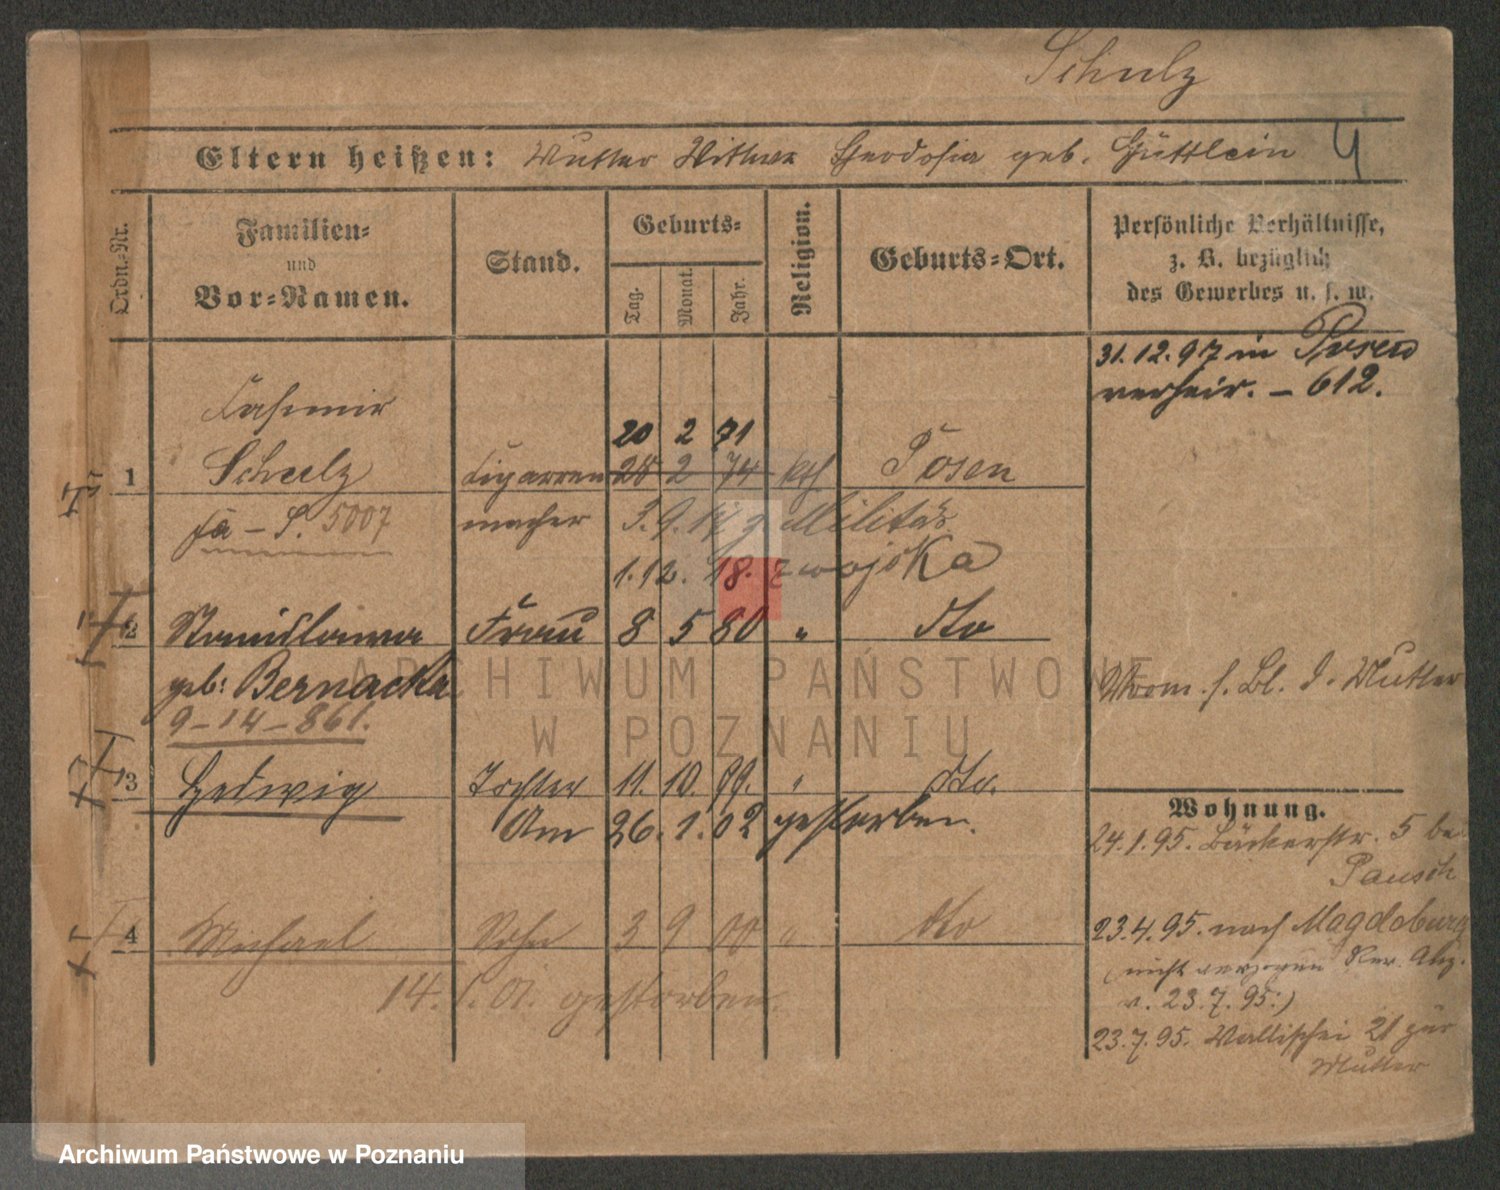 Schulz
Eltern heißen: Mutter Wittwe Theodosia geb. Güttlein 4
Ordn.-Nr.
Familien-
und
Vor-Namen.
Stand.
Geburts-
Tag. Monat. Jahr.
Religion.
Geburts-Ort.
Persönliche Verhältnisse,
z. B. bezüglich
des Gewerbes u. s. w.
31.12.97 in Posen
verheir. – 612.
Casimir
20 2 71
1 Schulz Cigarren 28 2 74 kth Posen
Fa – S. 5007 macher 3.9. Militär
1.12. 18. z wojska
2 Stanislawa Frau 8 5 80 " dto
geb: Bernacka
9–14–861.
f. Bl. d. Mutter
3 Hedwig Tochter 11. 10. 99. " dto.
Am 26.1.02 gestorben.
4 Michael Sohn 3 9 00 " dto
14. 1. 01. gestorben.
Wohnung.
24.1.95. Bäckerstr. 5 bei
Pausch
23.4.95. nach Magdeburg
(nicht verzogen Abz.
v. 23.7.95.)
23.7.95. Wallischei 21 zur
Mutter
ARCHIWUM PAŃSTWOWE
W POZNANIU
Archiwum Państwowe w Poznaniu